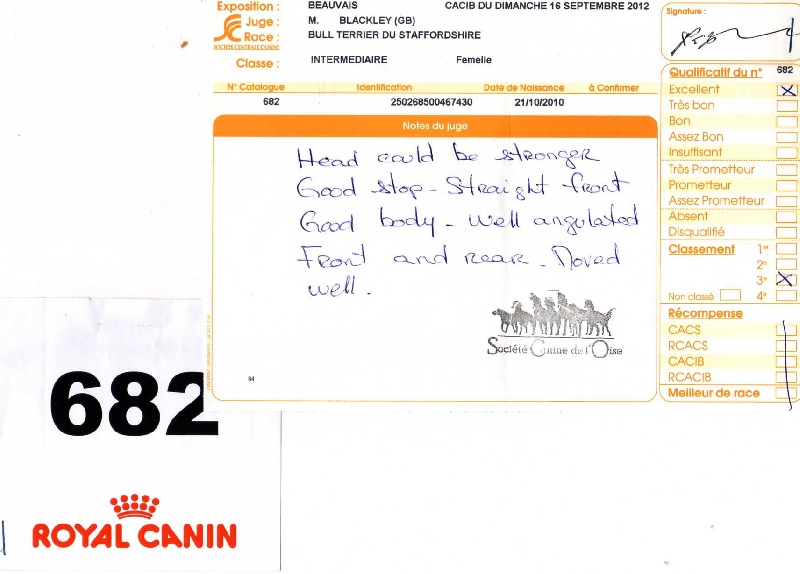 Exposition : BEAUVAIS CACIB DU DIMANCHE 16 SEPTEMBRE 2012
Juge : M. BLACKLEY (GB)
Race : BULL TERRIER DU STAFFORDSHIRE
SOCIÉTÉ CENTRALE CANINE
Classe : INTERMEDIAIRE Femelle
N° Catalogue Identification Date de Naissance à Confirmer
682 250268500467430 21/10/2010
Notes du juge
Head could be stronger
Good stop - Straight front
Good body - well angulated
Front and rear - Moved
well.
Société Canine de l'Oise
64
Signature :
Qualificatif du n° 682
Excellent X
Très bon
Bon
Assez Bon
Insuffisant
Très Prometteur
Prometteur
Assez Prometteur
Absent
Disqualifié
Classement 1er
2e
3e X
Non classé 4e
Récompense
CACS
RCACS
CACIB
RCACIB
Meilleur de race
682
ROYAL CANIN